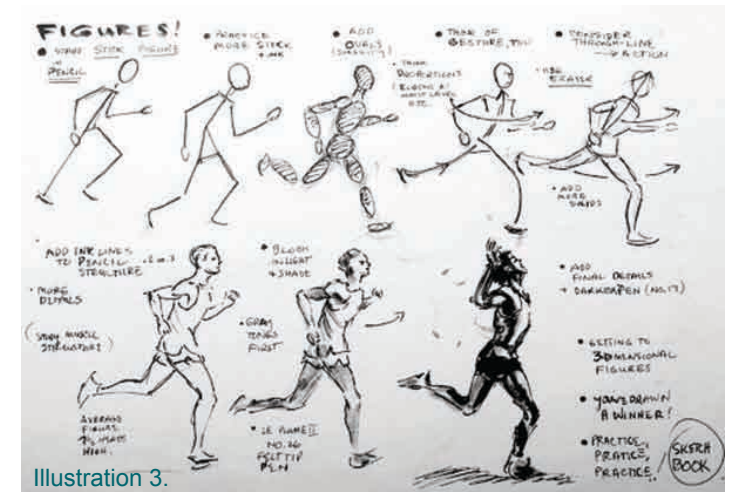 FIGURES!
• START STICK FIGURE
IN PENCIL
• PRACTICE
MORE STICK
• ADD
OVALS
• THINK OF
GESTURE, TOO
• THINK
PROPORTIONS
(ELBOWS AT
WAIST LEVEL
ETC.
• CONSIDER
THROUGH-LINE
ACTION
• USE
ERASER
• ADD
MORE
OVALS
• ADD INK LINES
TO PENCIL
STRUCTURE
• MORE
DETAILS
(STUDY MUSCLE
STRUCTURE)
AVERAGE
FIGURE
7½ HEADS
HIGH.
• BLOCK
IN LIGHT
+ SHADE
• GRAY
TONES
FIRST
• LE PLUME II
NO. 26
FELT TIP
PEN
• ADD
FINAL DETAILS
+ DARKER PEN (NO. 17)
• GETTING TO
3 DIMENSIONAL
FIGURES
• YOU'VE DRAWN
A WINNER!
• PRACTICE,
PRATICE,
PRACTICE!
SKETCH
BOOK
Illustration 3.